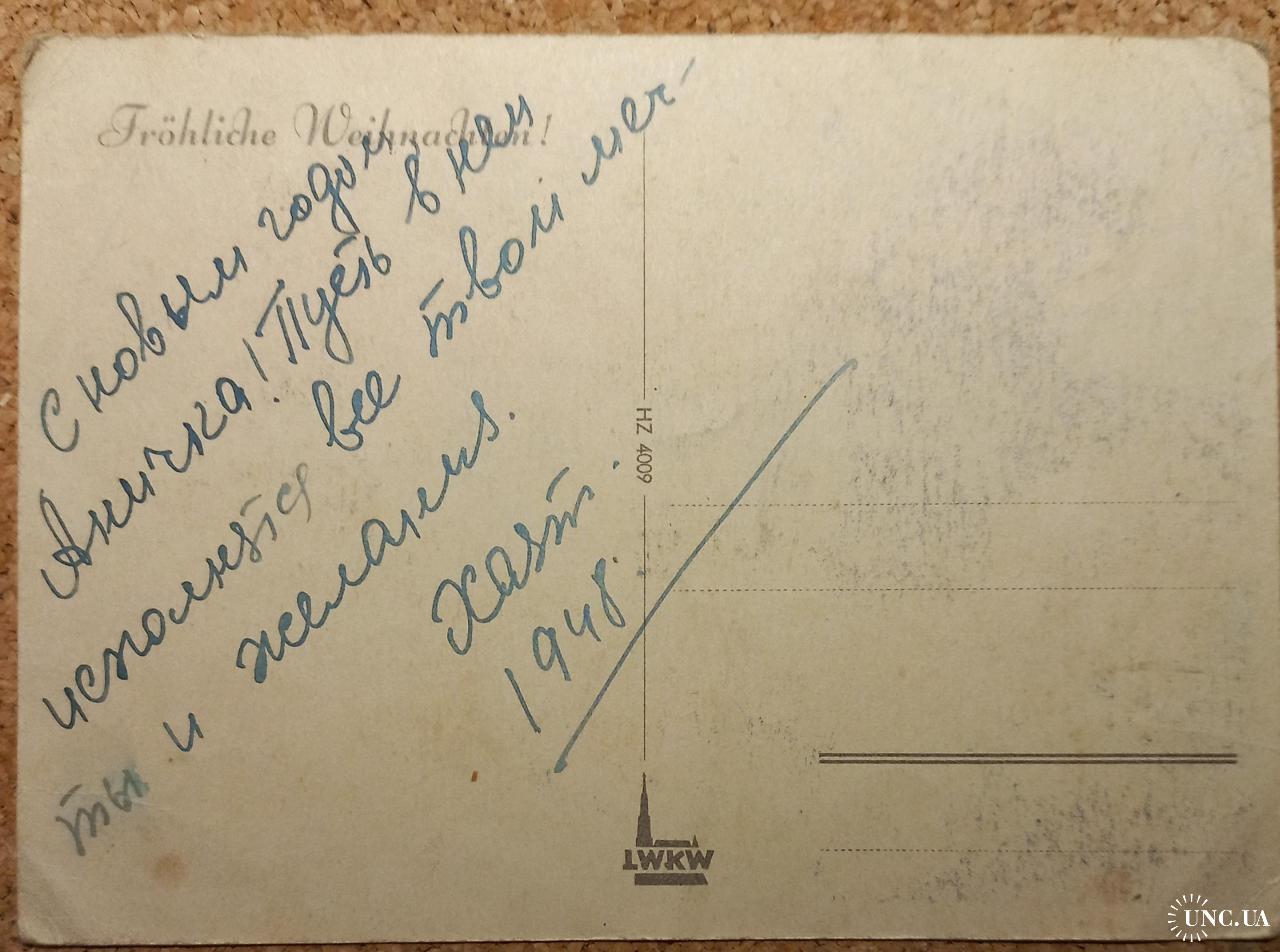 Fröhliche Weihnachten!
С новым годом
Аничка! Пусть в нем
исполнятся все твои меч-
ты и желания.
1948.
HZ 4009
LWKW
UNC.UA